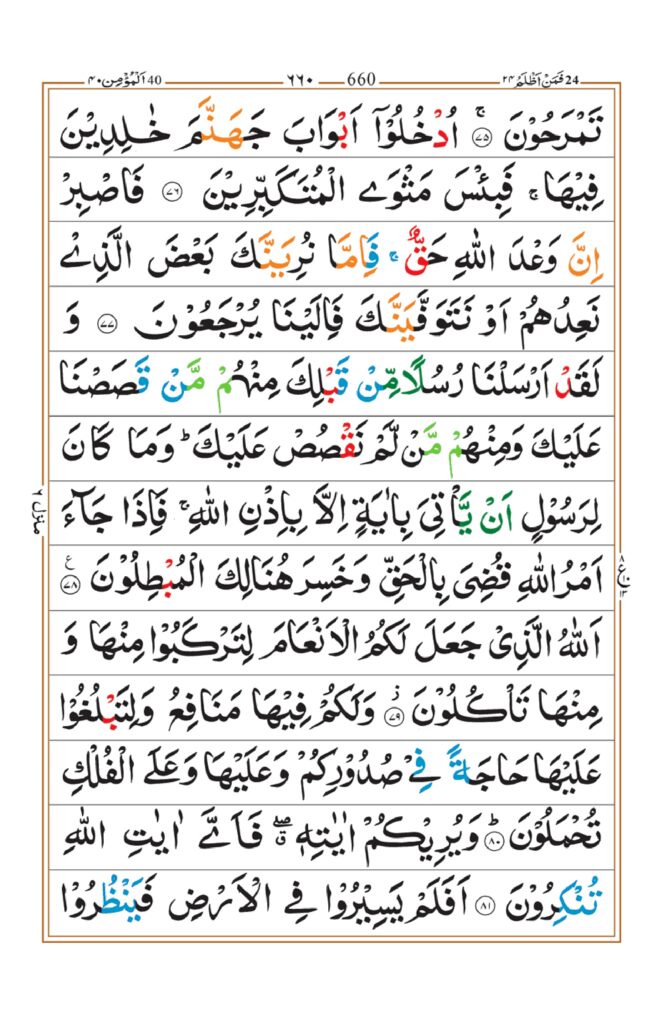 فَمَنْ اَظْلَمُ ٢٤ 24 660 ٦٦٠ اَلْمُؤْمِن ٤٠ 40
تَمْرَحُوْنَ ۚ ﴿۷۵﴾ اُدْخُلُوْۤا اَبْوَابَ جَهَنَّمَ خٰلِدِيْنَ
فِيْهَا ۚ فَبِئْسَ مَثْوَى الْمُتَكَبِّرِيْنَ ﴿۷۶﴾ فَاصْبِرْ
اِنَّ وَعْدَ اللّٰهِ حَقٌّ ۚ فَاِمَّا نُرِيَنَّكَ بَعْضَ الَّذِيْ
نَعِدُهُمْ اَوْ نَتَوَفَّيَنَّكَ فَاِلَيْنَا يُرْجَعُوْنَ ﴿۷۷﴾ وَ
لَقَدْ اَرْسَلْنَا رُسُلًا مِّنْ قَبْلِكَ مِنْهُمْ مَّنْ قَصَصْنَا
عَلَيْكَ وَمِنْهُمْ مَّنْ لَّمْ نَقْصُصْ عَلَيْكَ ؕ وَمَا كَانَ
لِرَسُوْلٍ اَنْ يَّاْتِيَ بِاٰيَةٍ اِلَّا بِاِذْنِ اللّٰهِ ۚ فَاِذَا جَآءَ
اَمْرُ اللّٰهِ قُضِيَ بِالْحَقِّ وَخَسِرَ هُنَالِكَ الْمُبْطِلُوْنَ ﴿۷۸﴾ ع
اَللّٰهُ الَّذِيْ جَعَلَ لَكُمُ الْاَنْعَامَ لِتَرْكَبُوْا مِنْهَا وَ
مِنْهَا تَاْكُلُوْنَ ؗ ﴿۷۹﴾ وَلَكُمْ فِيْهَا مَنَافِعُ وَلِتَبْلُغُوْا
عَلَيْهَا حَاجَةً فِيْ صُدُوْرِكُمْ وَعَلَيْهَا وَعَلَى الْفُلْكِ
تُحْمَلُوْنَ ؕ ﴿۸۰﴾ وَيُرِيْكُمْ اٰيٰتِهٖ ۖق فَاَيَّ اٰيٰتِ اللّٰهِ
تُنْكِرُوْنَ ﴿۸۱﴾ اَفَلَمْ يَسِيْرُوْا فِي الْاَرْضِ فَيَنْظُرُوْا
منزل ٦